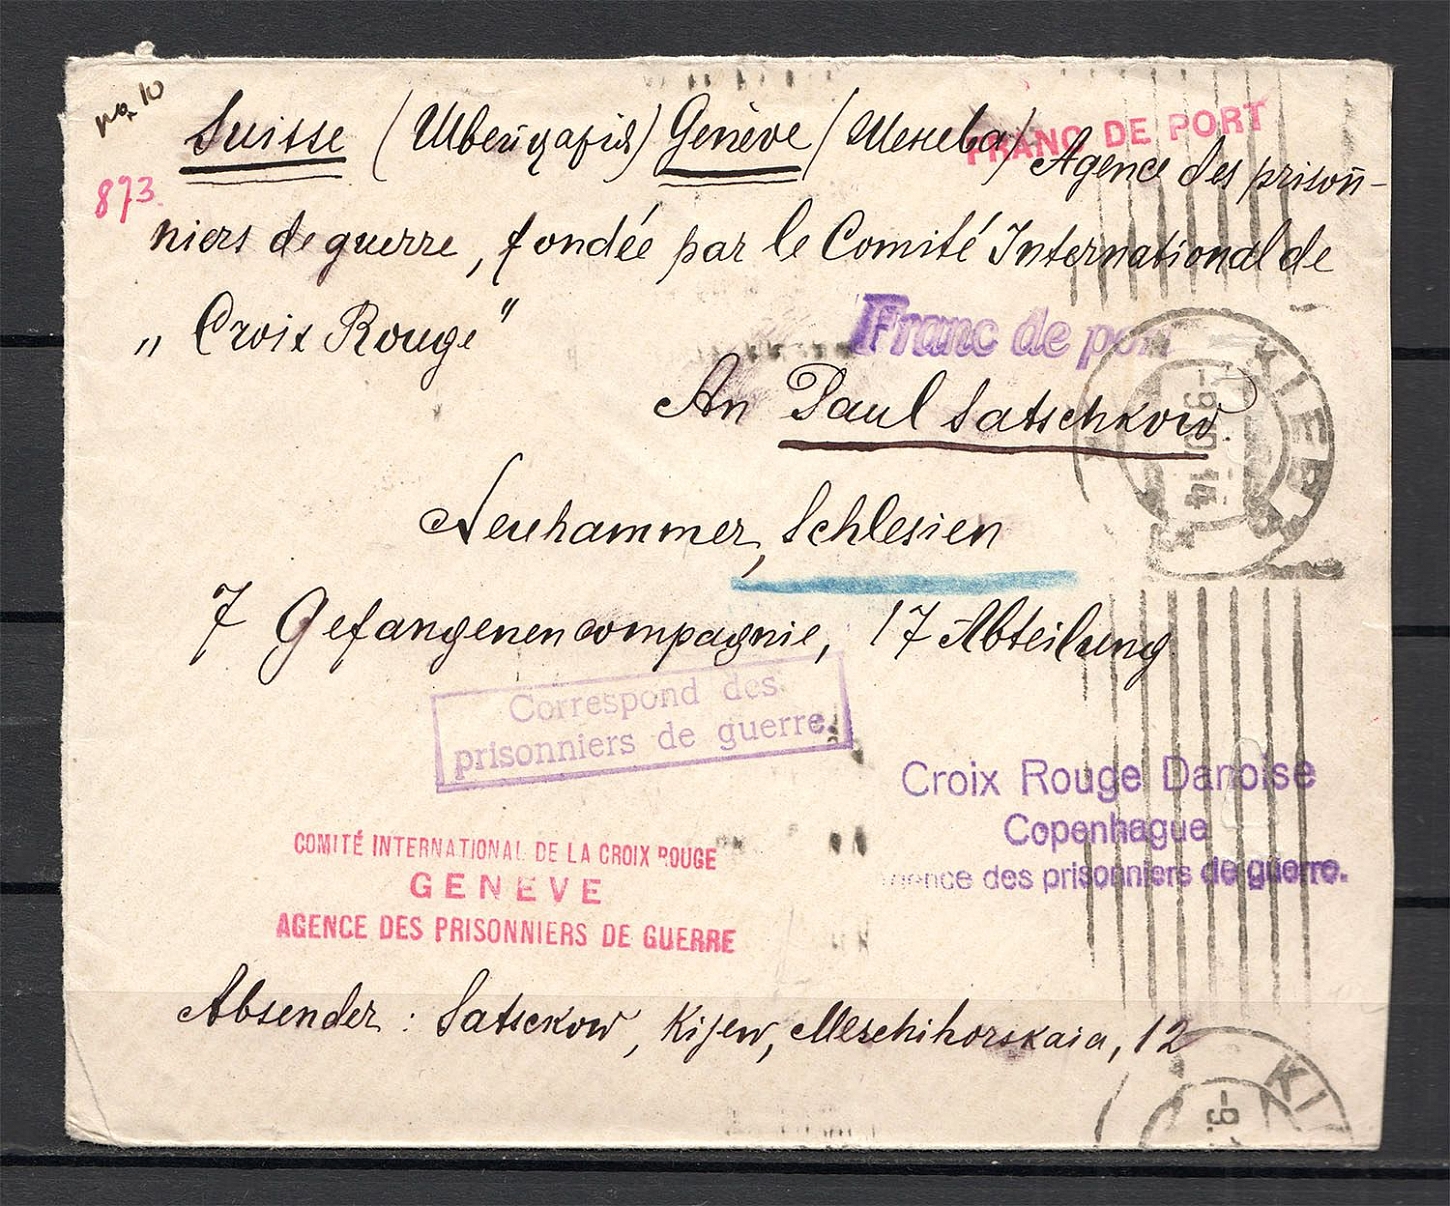 873.
FRANC DE PORT
Suisse (Швейцарія) Genève (Женева) Agence des prison̄-
niers de guerre, fondée par le Comité International de
„ Croix Rouge "
Franc de port
An Paul Satschkow
Neuhammer, Schlesien
7 Gefangenencompagnie, 17 Abteilung
KIEV
-9. 14
Correspond des
prisonniers de guerre.
Croix Rouge Danoise
Copenhague
Agence des prisonniers de guerre.
COMITÉ INTERNATIONAL DE LA CROIX ROUGE
GENÈVE
AGENCE DES PRISONNIERS DE GUERRE
Absender : Satsckow, Kijew, Meschihorskaia, 12
KI
-9.